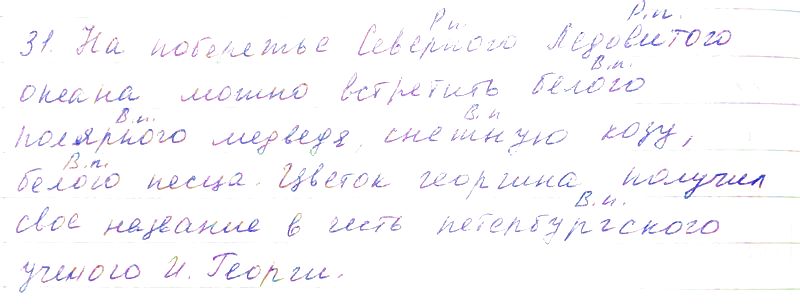 Р.п. Р.п.
31. На побережье Северного Ледовитого
В.п.
океана можно встретить белого
В.п. В.п
полярного медведя, снежную козу,
В.п.
белого песца. Цветок георгина получил
В.п.
свое название в честь петербургского
ученого И. Георги.